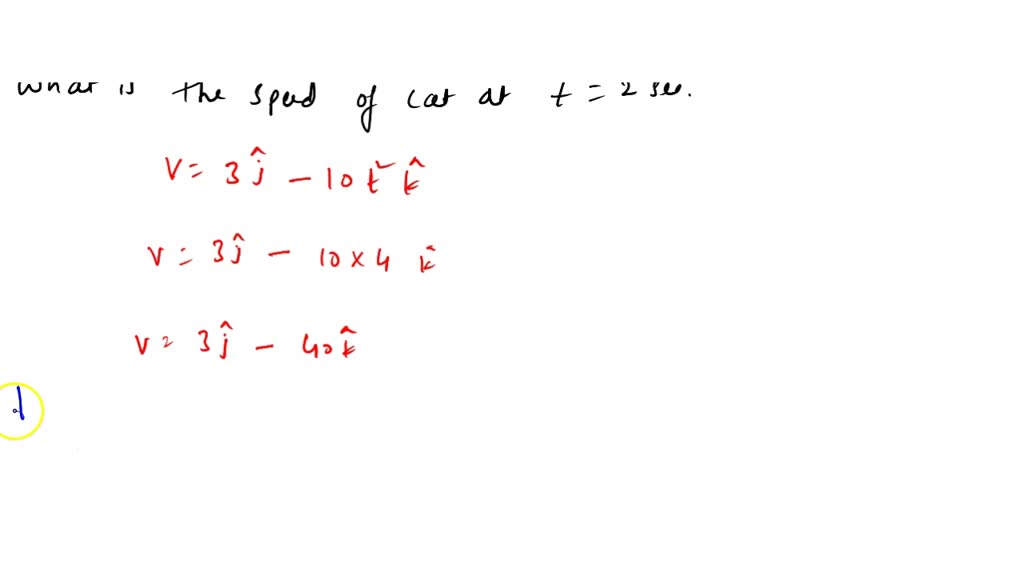 What is the speed of cat at t = 2 sec.
V = 3ĵ - 10t² k̂
V = 3ĵ - 10 × 4 k̂
V = 3ĵ - 40k̂